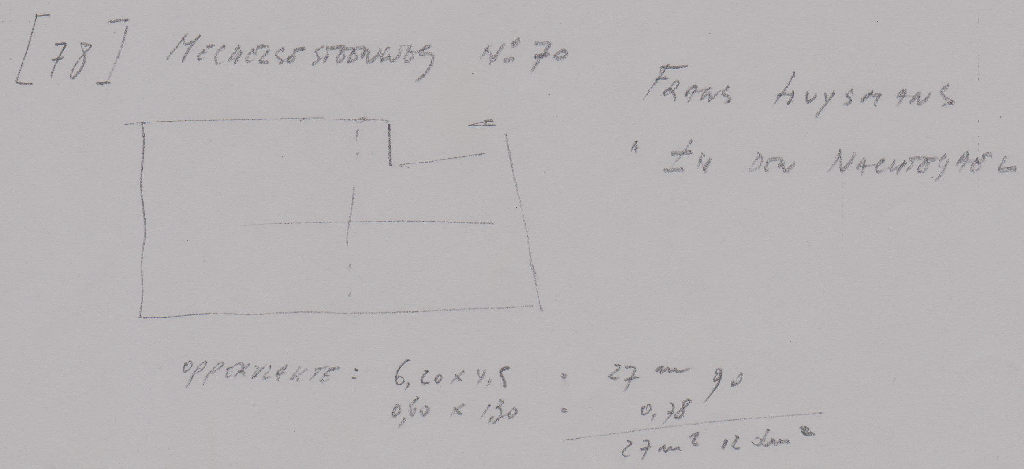 [78] MECHELSESTEENWEG Nº 70
FRANS HUYSMANS
" IN DEN NACHTEGAEL
OPPERVLAKTE: 6,20 x 4,5 = 27 m 90
0,60 x 1,30 = 0,78
27 m² 12 dm²